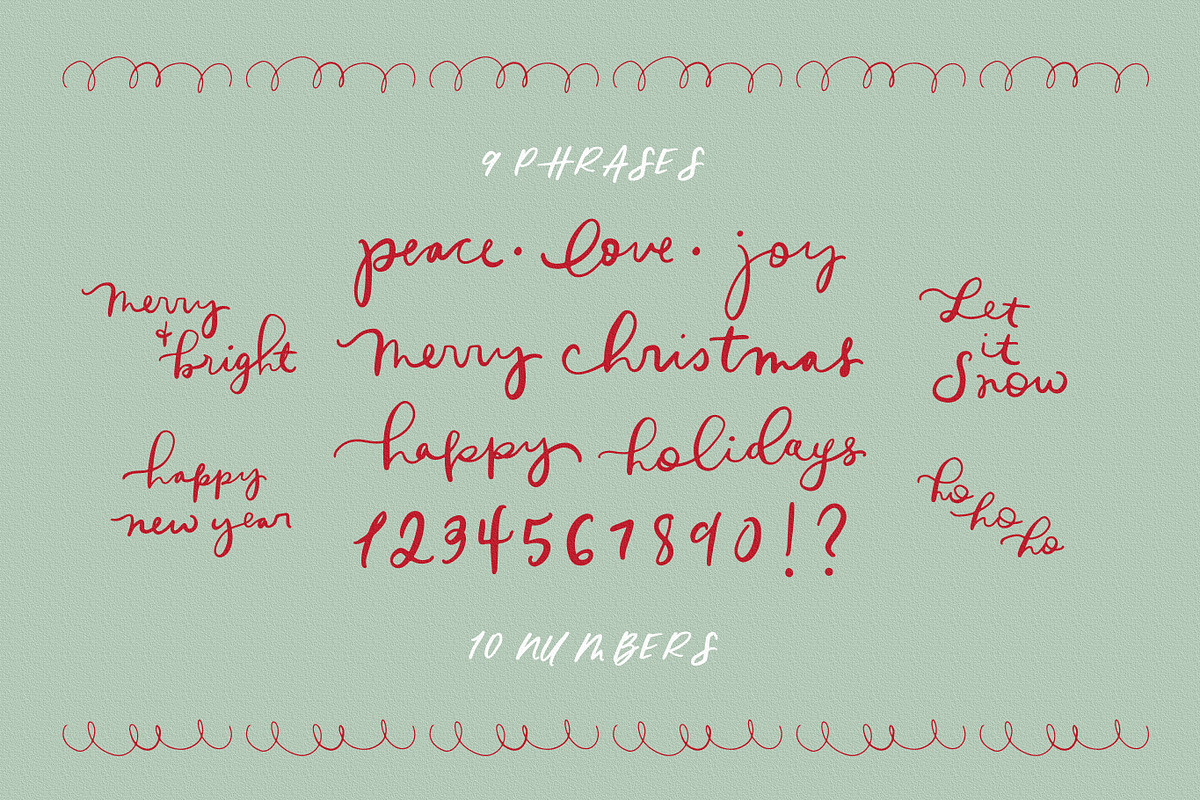 9 PHRASES
peace • love • joy
merry
& bright
merry christmas
Let
it
Snow
happy holidays
happy
new year
ho
ho
ho
1234567890!?
10 NUMBERS